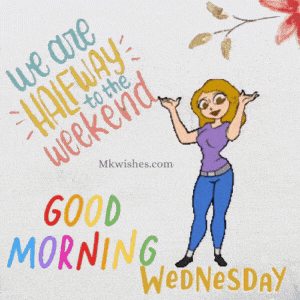 we are
HALFWAY
to the
weekend
Mkwishes.com
GOOD
MORNING
WeDNeSDAY